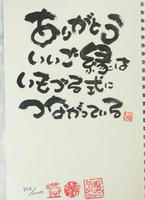 ありがとう
いいご縁は
いもづる式に
つながっている